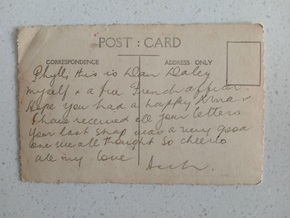 POST : CARD
CORRESPONDENCE ADDRESS ONLY
Phyll, this is Dan Daley
myself & a free French officer.
Hope you had a happy Xmas
I have received all your letters
Your last snap was a very good
one we all thought. So cheerio
all my love